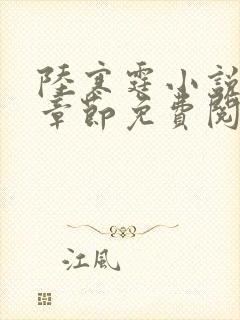 陸寒霆小說
章節免費閱
江風